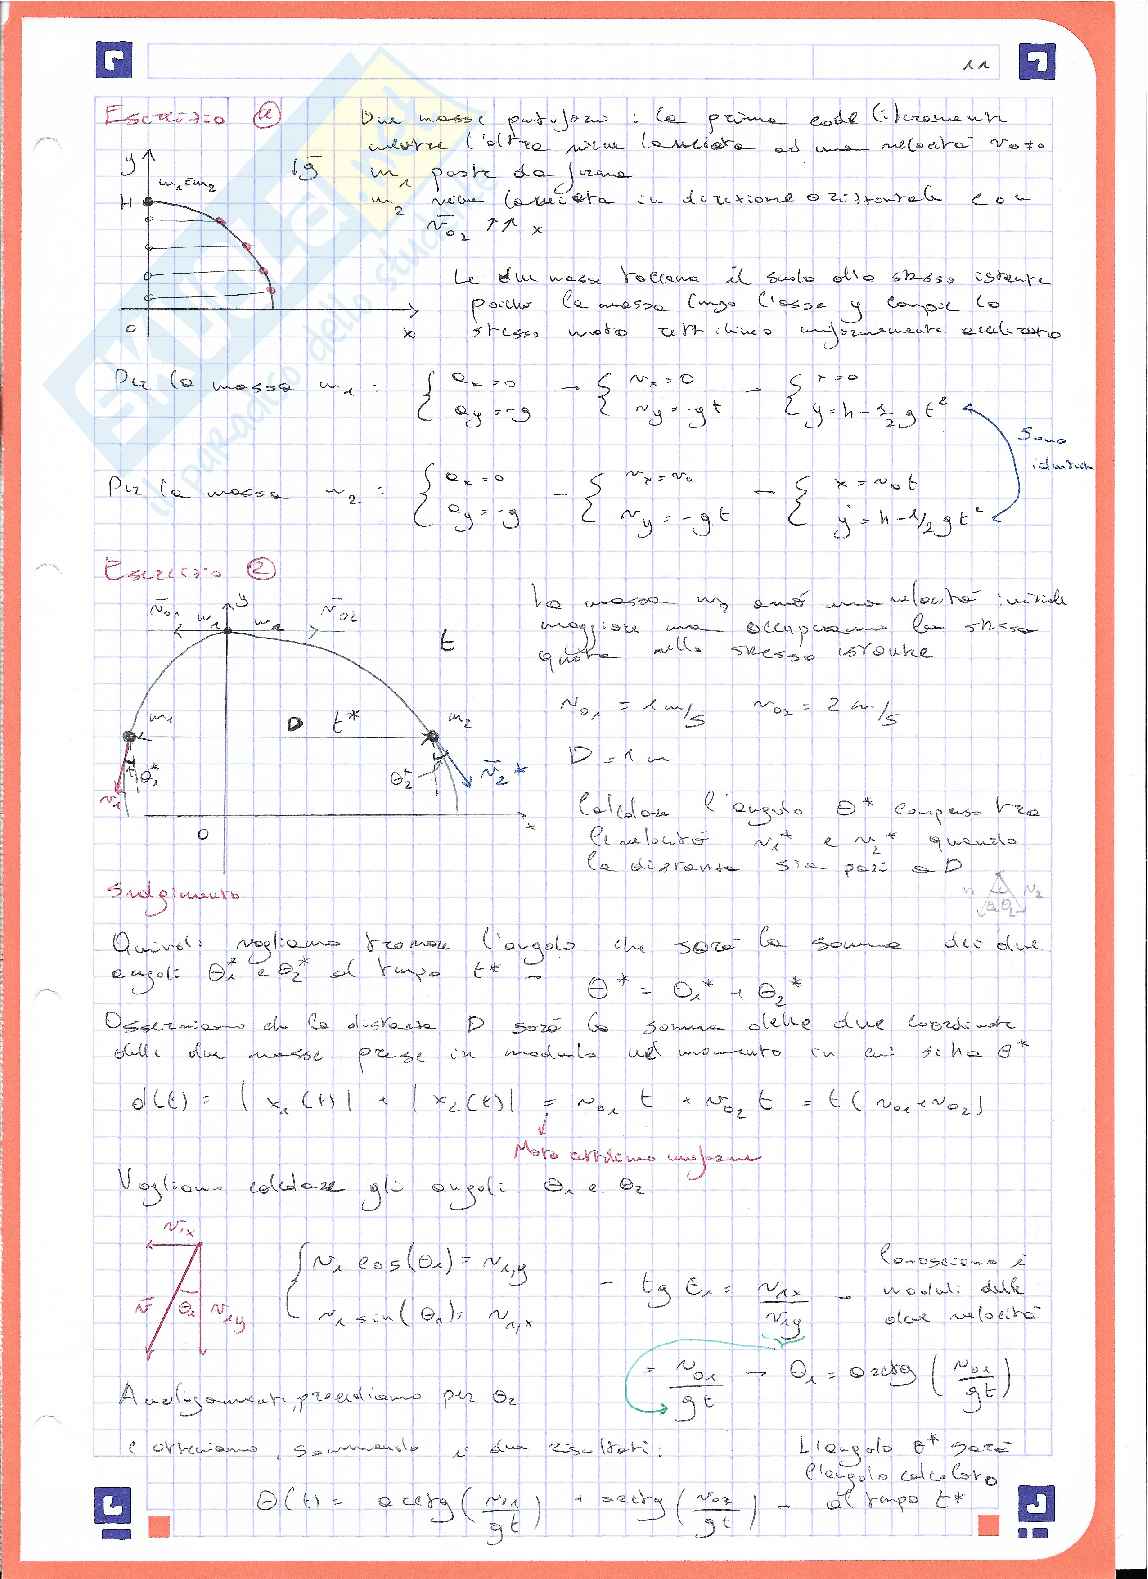 11
Esercizio 1
Due masse puntiformi : la prima cade liberamente
mentre l'altra viene lanciata ad una velocità v0≠0
m1 parte da ferma
m2 viene lanciata in direzione orizzontale con
v02 ↑↑ x
y
H
m1=m2
↓g
0
x
Le due masse toccano il suolo allo stesso istante
poiché la massa lungo l'asse y compie lo
stesso moto rettilineo uniformemente accelerato
Per la massa m1 : { ax=0 → { vx=0 → { x=0
ay=-g vy=-gt y=h-1/2 gt²
Sono
identiche
Per la massa m2 : { ax=0 → { vx=v0 → { x=v0t
ay=-g vy=-gt y=h-1/2 gt²
Esercizio 2
v01 m1 y m2 v02
t
m1 D t* m2
θ1* θ2* v2*
v1
0
x
La massa m2 avrà una velocità iniziale
maggiore ma occuperanno la stessa
quota nello stesso istante
v01 = 1 m/s v02 = 2 m/s
D = 1 m
Calcolare l'angolo θ* compreso tra
le velocità v1* e v2* quando
la distanza sia pari a D
Svolgimento
Quindi vogliamo trovare l'angolo che sarà la somma dei due
angoli θ1* e θ2* al tempo t* →
θ* = θ1* + θ2*
Osserviamo che la distanza D sarà la somma delle due coordinate
delle due masse prese in modulo nel momento in cui si ha θ*
d(t) = |x1(t)| + |x2(t)| = v01 t + v02 t = t(v01+v02)
Moto rettilineo uniforme
Vogliamo calcolare gli angoli θ1 e θ2
v1x
v θ1 v1y
{ v1 cos(θ1) = v1,y
v1 sin(θ1) = v1,x
→ tg θ1 = v1x/v1y →
Conosciamo i
moduli delle
due velocità
= v01/gt → θ1 = arctg (v01/gt)
Analogamente, procediamo per θ2
e otteniamo, sommando i due risultati:
θ(t) = arctg (v01/gt) + arctg (v02/gt) →
L'angolo θ* sarà
l'angolo calcolato
al tempo t*
SKUOLA.net
il paradiso dello studente